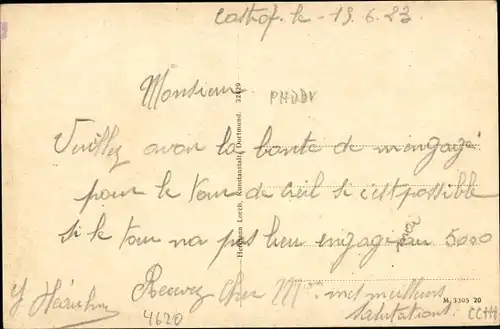 le 19.6.23
Monsieur
PHDDV
Veuillez avoir la bonté de m'engagé
pour le tour de Creil si c'est possible
si le tour na pas lieu engage au 5000
Recevez Cher Mr mes meilleurs
salutations
Hermann Lorch, Kunstanstalt, Dortmund. 32429
M 3305 20
4620
CCHH